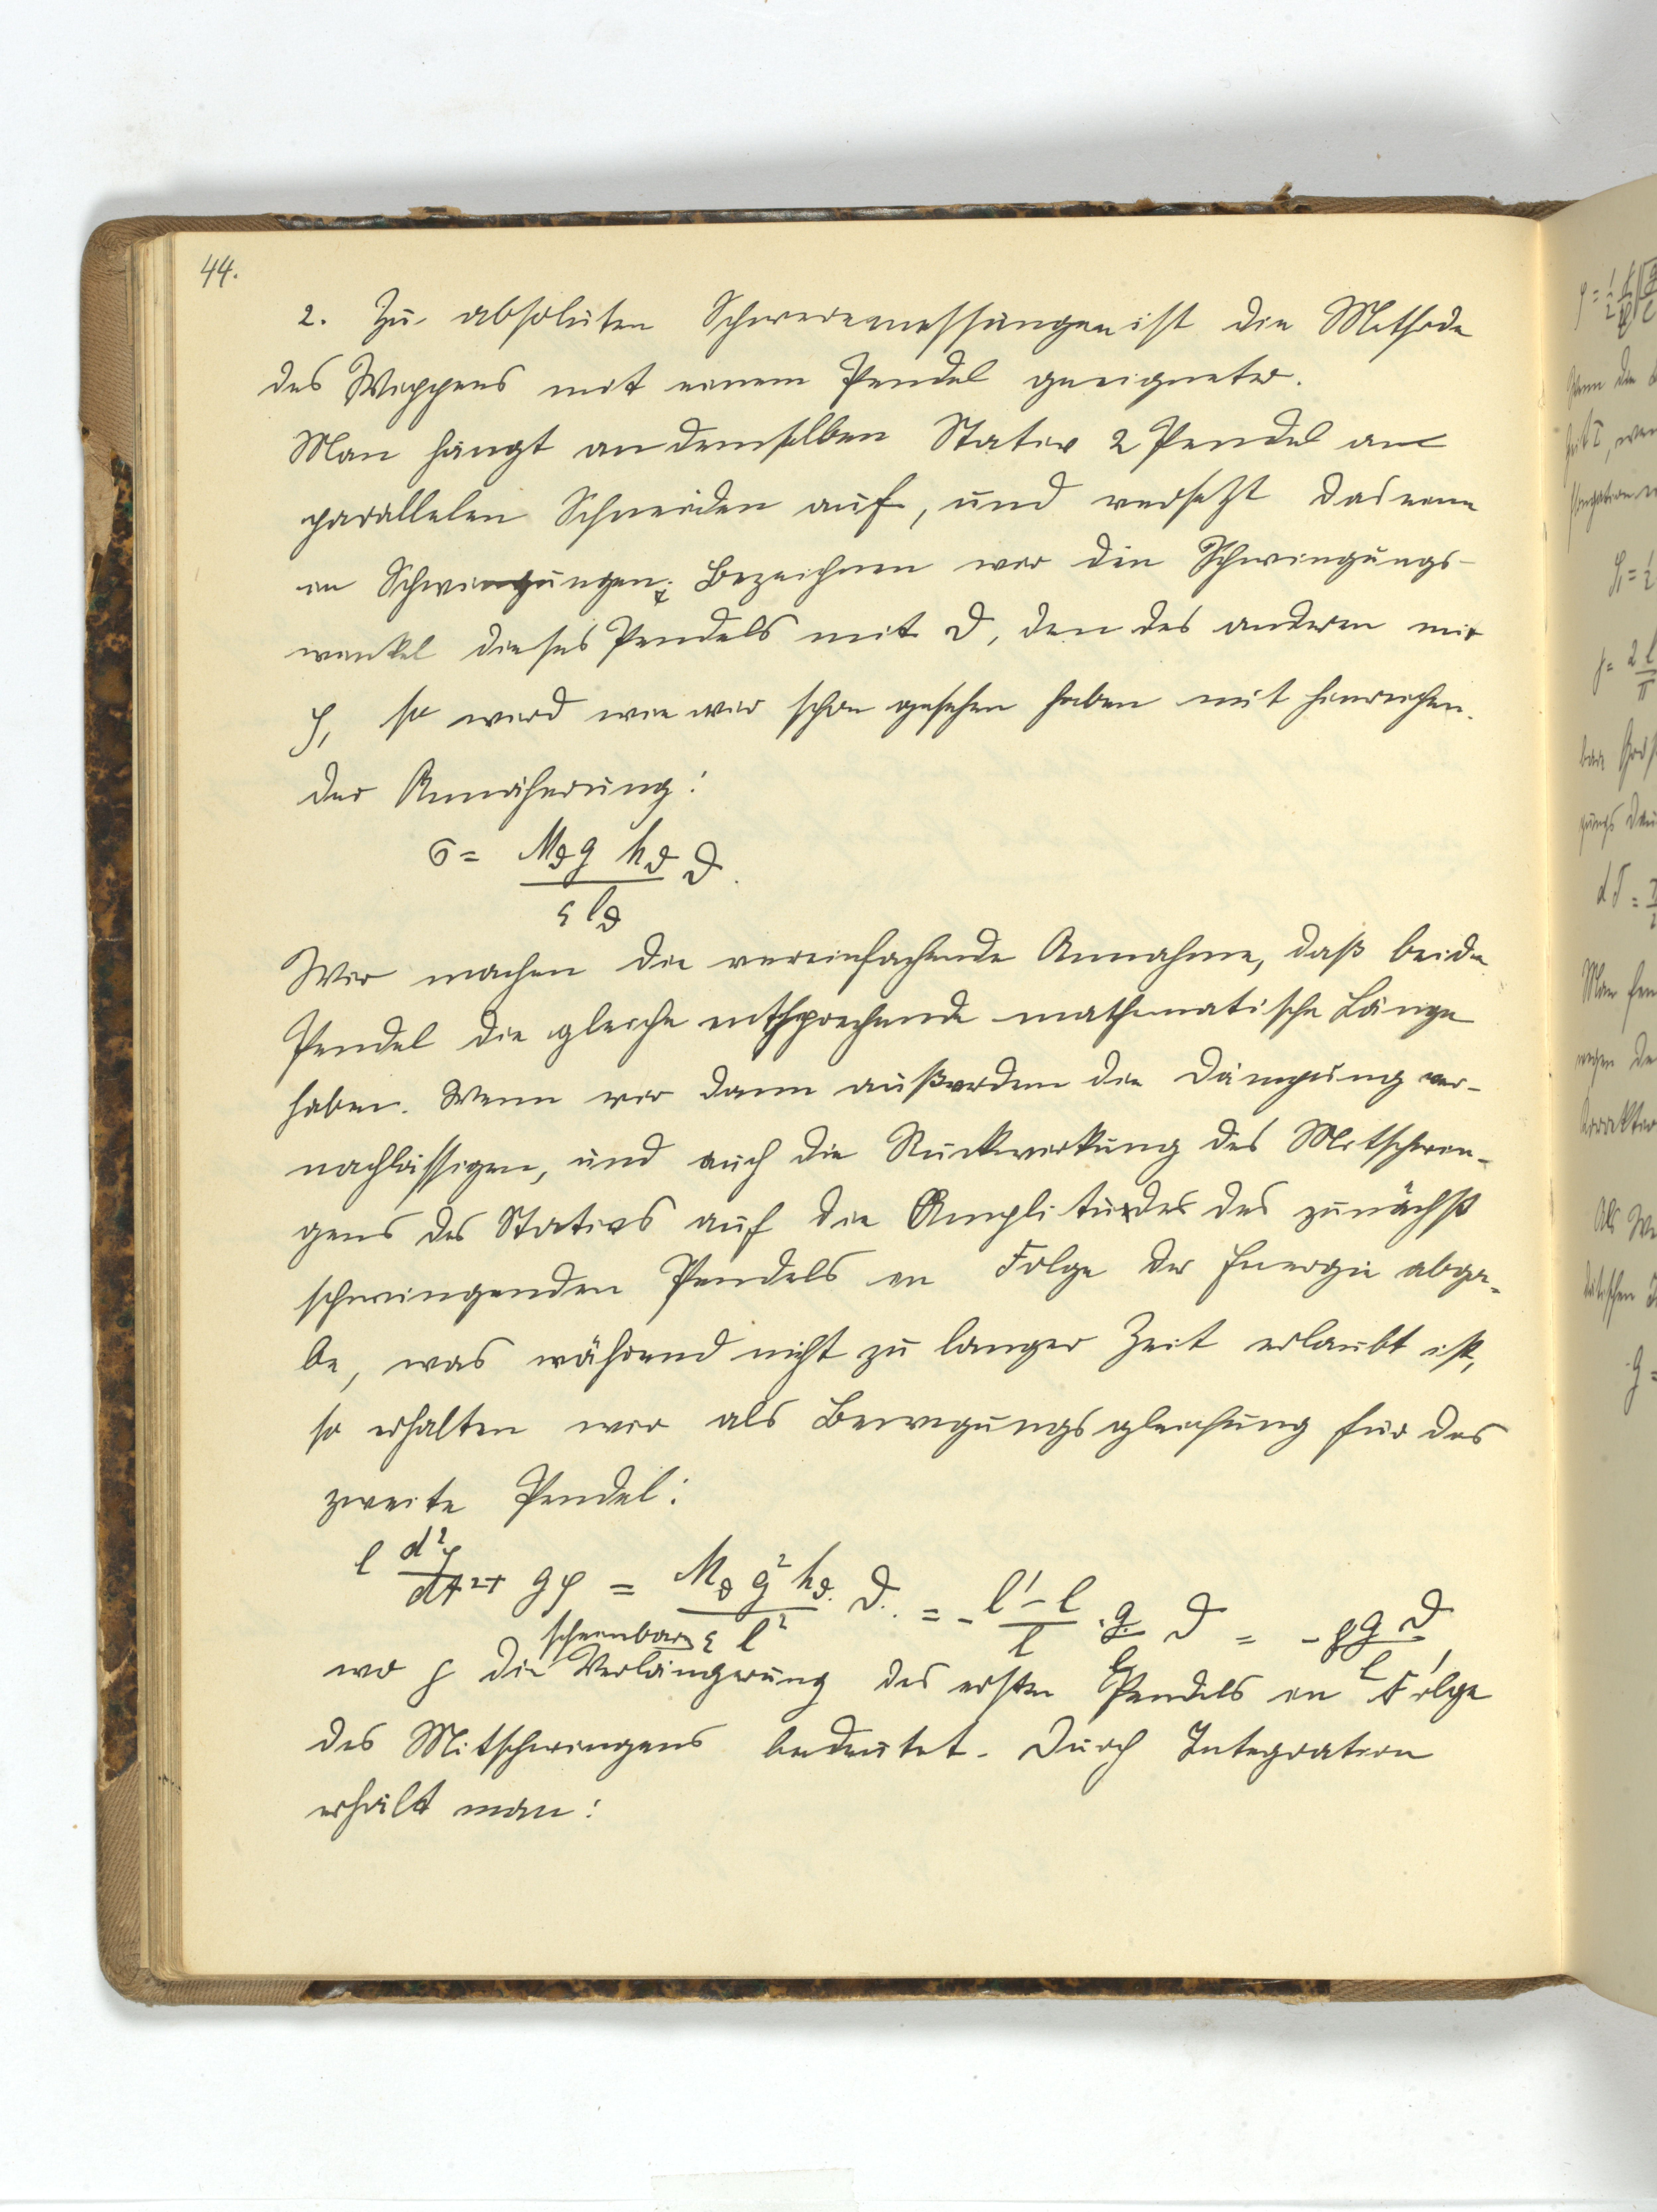 44.
2. Zu absoluten Schweremessungen ist die Methode
des Wippens mit einem Pendel geeigneter.
Man hängt an demselben Stativ 2 Pendel an
parallelen Schneiden auf, und versetzt das eine
in Schwingungen; Bezeichnen wir den Schwingungs-
winkel dieses Pendels mit ϑ, den des anderen mit
φ, so wird wie wir schon gesehen haben mit hinreichen-
der Annäherung:
σ = M_ϑ g h_ϑ / ε l_ϑ ϑ.
Wir machen die vereinfachende Annahme, daß beide
Pendel die gleiche entsprechende mathematische Länge
haben. Wenn wir dann außerdem die Dämpfung ver-
nachlässigen, und auch die Rückwirkung des Mitschwin-
gens des Stativs auf die Amplitude des zunächst
schwingenden Pendels in Folge der Energie abga-
be, was während nicht zu langer Zeit erlaubt ist,
so erhalten wir als Bewegungsgleichung für das
zweite Pendel:
l d²φ/dt² + gφ = M_ϑ g² h_ϑ / ε l² ϑ. = - l'-l / l · g / l ϑ = - ρg ϑ / l,
scheinbare
wo ρ die Verlängerung des ersten Pendels in Folge
des Mitschwingens bedeutet. Durch Integration
erhält man: